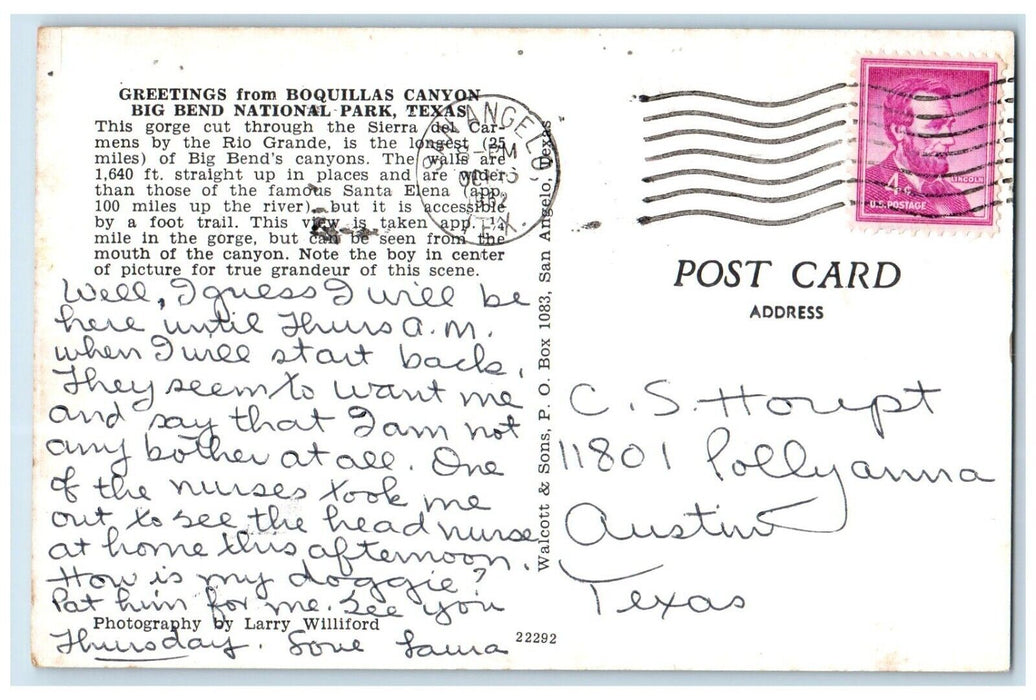 GREETINGS from BOQUILLAS CANYON
BIG BEND NATIONAL PARK, TEXAS
This gorge cut through the Sierra del Car-
mens by the Rio Grande, is the longest (25
miles) of Big Bend's canyons. The walls are
1,640 ft. straight up in places and are wider
than those of the famous Santa Elena (app.
100 miles up the river), but it is accessible
by a foot trail. This view is taken app. ¼
mile in the gorge, but can be seen from the
mouth of the canyon. Note the boy in center
of picture for true grandeur of this scene.
Well, I guess I will be
here until Thurs A.M.
when I will start back.
They seem to want me
and say that I am not
any bother at all. One
of the nurses took me
out to see the head nurse
at home this afternoon.
How is my doggie?
Pat him for me. See you
Thursday. Love Laura
Photography by Larry Williford
22292
Walcott & Sons, P. O. Box 1083, San Angelo, Texas
SAN ANGELO
PM
OCT
TEX.
LINCOLN
4¢
U.S. POSTAGE
POST CARD
ADDRESS
C. S. Houpt
11801 Pollyanna
Austin
Texas